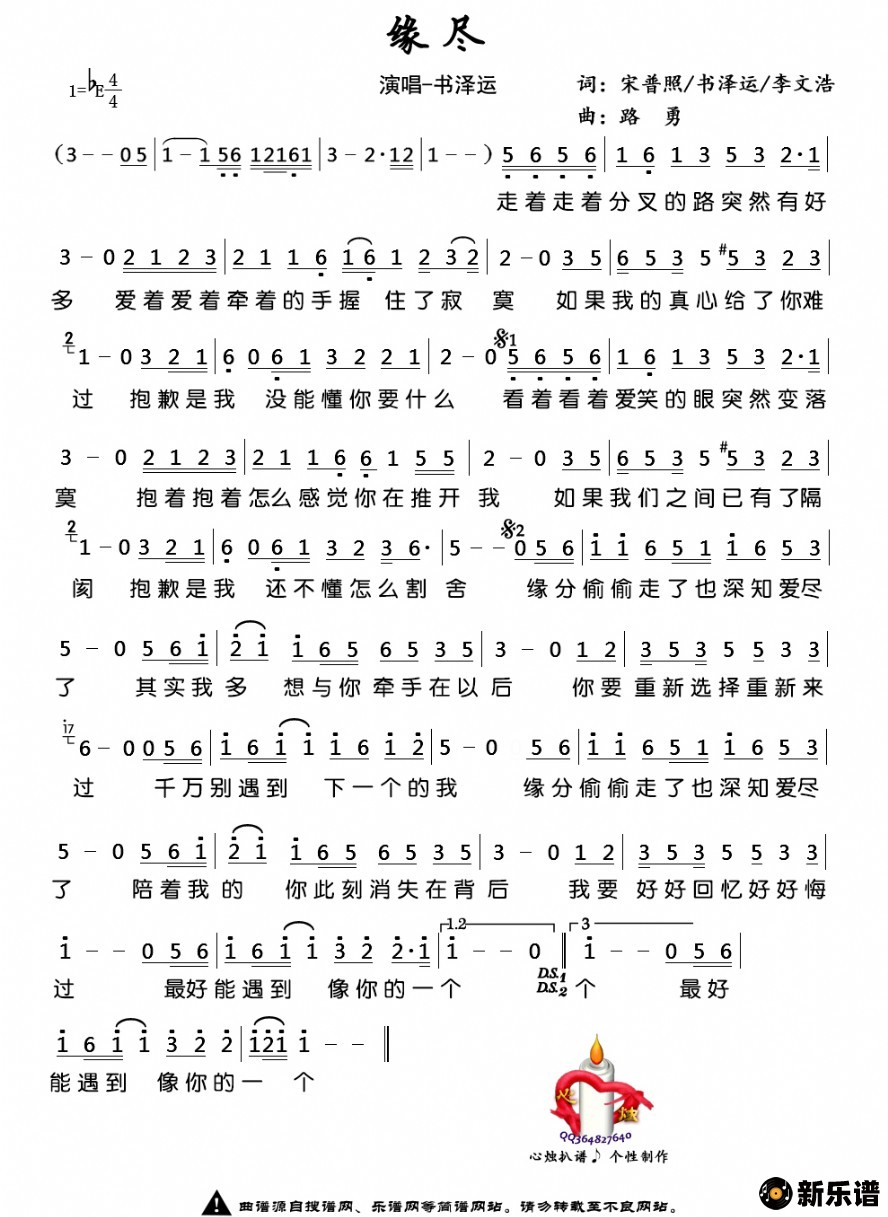 缘尽
1=♭E 4/4
演唱-书泽运
词：宋普照/书泽运/李文浩
曲：路 勇
(3 - - 0 5 | 1 - 1 5 6 1 2 1 6 1 | 3 - 2 · 1 2 | 1 - - ) 5 6 5 6 | 1 6 1 3 5 3 2 · 1 |
走着走着分叉的路突然有好
3 - 0 2 1 2 3 | 2 1 1 6 1 6 1 2 3 2 | 2 - 0 3 5 | 6 5 3 5 #5 3 2 3 |
多 爱着爱着牵着的手握 住了寂 寞 如果我的真心给了你难
2 1 - 0 3 2 1 | 6 0 6 1 3 2 2 1 | 2 - 0 𝄋1 5 6 5 6 | 1 6 1 3 5 3 2 · 1 |
过 抱歉是我 没能懂你要什么 看着看着爱笑的眼突然变落
3 - 0 2 1 2 3 | 2 1 1 6 6 1 5 5 | 2 - 0 3 5 | 6 5 3 5 #5 3 2 3 |
寞 抱着抱着怎么感觉你在推开 我 如果我们之间已有了隔
2 1 - 0 3 2 1 | 6 0 6 1 3 2 3 6 · | 5 - - 𝄋2 0 5 6 | 1 1 6 5 1 1 6 5 3 |
阂 抱歉是我 还不懂怎么割 舍 缘分偷偷走了也深知爱尽
5 - 0 5 6 1 | 2 1 1 6 5 6 5 3 5 | 3 - 0 1 2 | 3 5 3 5 5 3 3 |
了 其实我多 想与你牵手在以后 你要 重新选择重新来
i7 6 - 0 0 5 6 | 1 6 1 1 1 6 1 2 | 5 - 0 5 6 | 1 1 6 5 1 1 6 5 3 |
过 千万别遇到 下一个的我 缘分偷偷走了也深知爱尽
5 - 0 5 6 1 | 2 1 1 6 5 6 5 3 5 | 3 - 0 1 2 | 3 5 3 5 5 3 3 |
了 陪着我的 你此刻消失在背后 我要 好好回忆好好悔
1.2 3
1 - - 0 5 6 | 1 6 1 1 3 2 2 · 1 | 1 - - 0 ‖ 1 - - 0 5 6 |
D.S.1
D.S.2
过 最好能遇到 像你的一个 个 最好
1 6 1 1 3 2 2 | 1 2 1 1 - - ‖
能遇到 像你的一 个
心 烛
QQ364827640
心烛扒谱♪ 个性制作
曲谱源自搜谱网、乐谱网等简谱网站。请勿转载至不良网站。
新乐谱